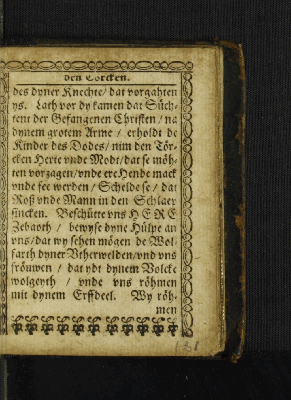 den Törcken.
des dyner Knechte/ dat vorgahten
ys. Lath vor dy kamen dat Süch-
tent der Gefangenen Christen / na
dynem grotem Arme / erholdt de
Kinder des Dodes/ nim den Tör-
cken Herte vnde Modt/ dat se möh-
ten vorzagen/ vnde ere Hende mack
vnde fee werden / Schelde se / dat
Roß vnde Mann in den Schlaep
sincken. Beschütte vns HERE
Zebaoth / bewyse dyne Hülpe an
vns/dat wy sehen mögen de Wol-
farth dyner Vtherwelden/vnd vns
fröuwen / dat ydt dynem Volcke
wolgeyth / vnde vns röhmen
mit dynem Erffdeel. Wy röh-
men
131